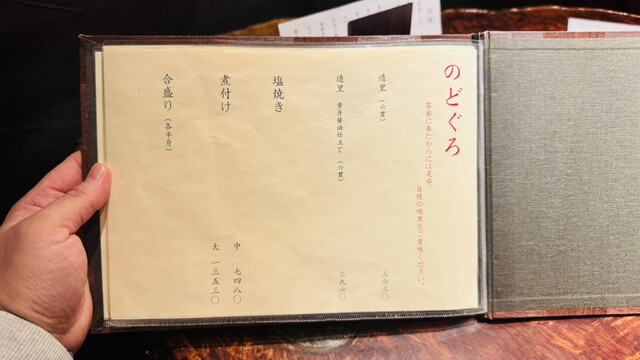 のどぐろ
茶寮に来たからには是非、
自慢の喉黒をご賞味ください。
造里（六貫） 二六二〇
造里 黄身醤油仕立て（六貫） 二九六〇
塩焼き
煮付け
中 七四八〇
大 一三五三〇
合盛り（各半身）